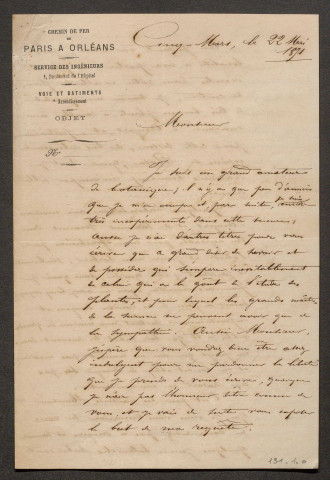 CHEMIN DE FER
DE
PARIS A ORLÉANS
SERVICE DES INGÉNIEURS
1, Boulevard de l'Hôpital
VOIE ET BATIMENTS
Arrondissement
OBJET
No
Cinq-Mars, le 22 Mai
1871
Monsieur
Je suis un grand amateur
de botanique; il n'y a que peu d'années
que je m'en occupe et par suite je suis
très inexpérimenté dans cette science;
Aussi je n'ai d'autres titres pour vous
écrire que ce grand désir de savoir et
de posséder qui s'empare inévitablement
de celui qui a le goût de l'étude des
plantes, et pour lequel les grands maîtres
de la science ne peuvent avoir que de
la sympathie. Aussi Monsieur,
j'espère que vous voudrez bien être assez
indulgent pour me pardonner la liberté
que je prends de vous écrire, quoique
je n'aie pas l'honneur d'être connu de
vous, et je vais de suite vous exposer
le but de ma requête.